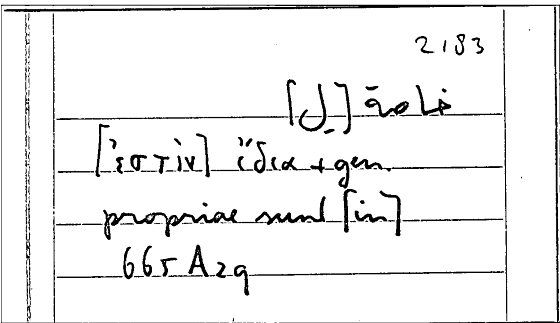 2183
خاصة [ل]
[ἐστὶν] ἴδια + gen.
propriae sunt [in]
665 A 29